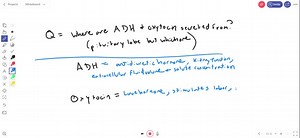 Q = where are ADH & oxytocin secreted from?
(pituitary lobe but which one)
ADH = antidiuretic hormone, kidney function,
extracellular fluid volume & solute concentration
Oxytocin = love hormone, stimulates labor,